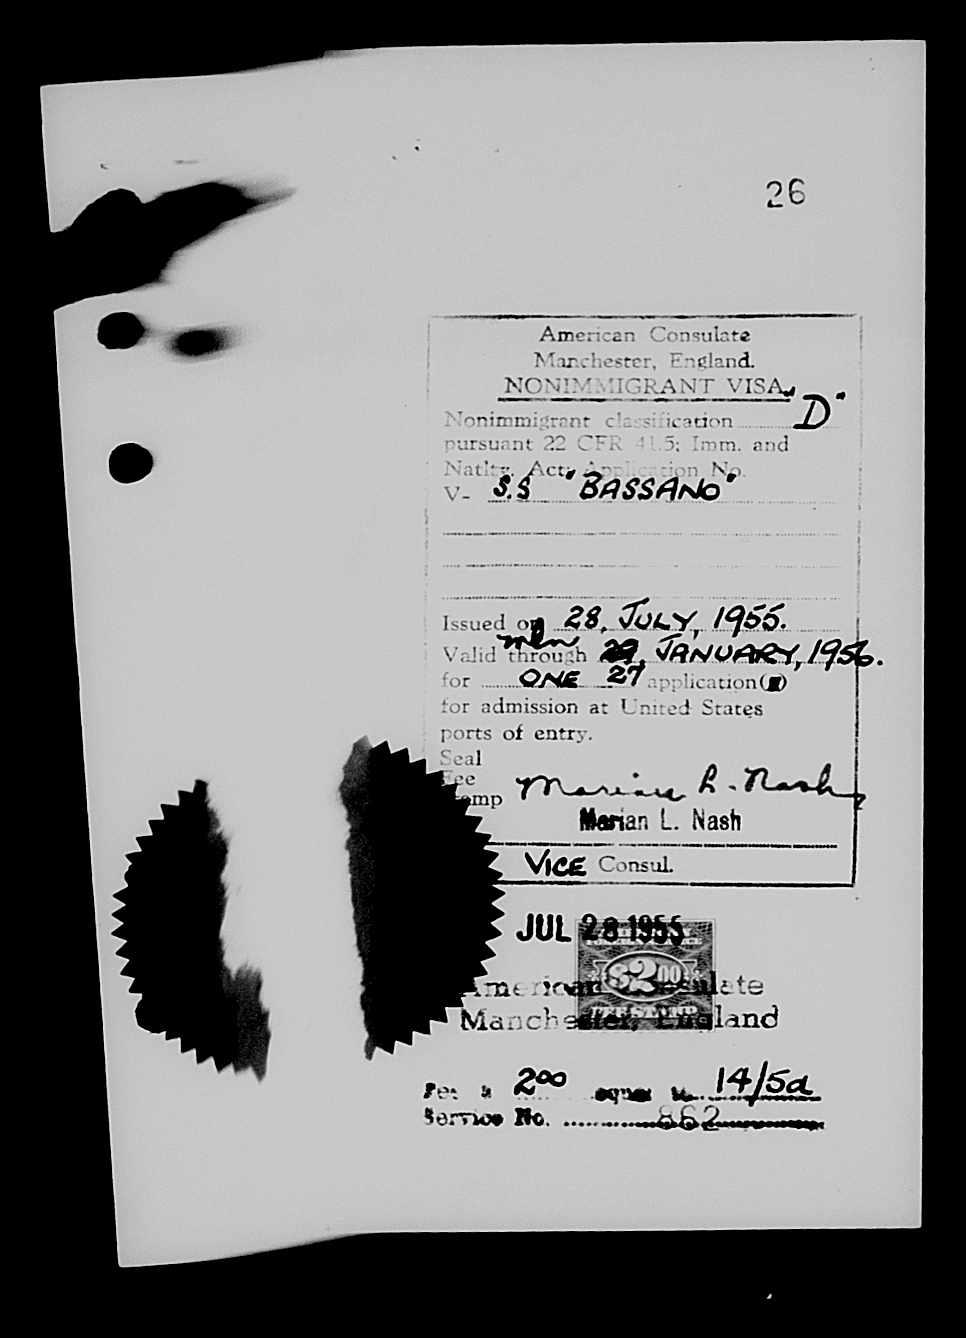 26
American Consulate
Manchester, England.
NONIMMIGRANT VISA
Nonimmigrant classification "D"
pursuant 22 CFR 41.5; Imm. and
Natlty. Act; Application No.
V- S.S "BASSANO"
Issued on 28, JULY, 1955.
mln
Valid through 29, JANUARY, 1956.
for ONE 27 application( )
for admission at United States
ports of entry.
Seal
Fee
Stamp Marian L. Nash
Marian L. Nash
VICE Consul.
JUL 28 1955
$2.00
American Consulate
Manchester, England
Fee $ 2.00 equal to 14/5d
Service No. 862